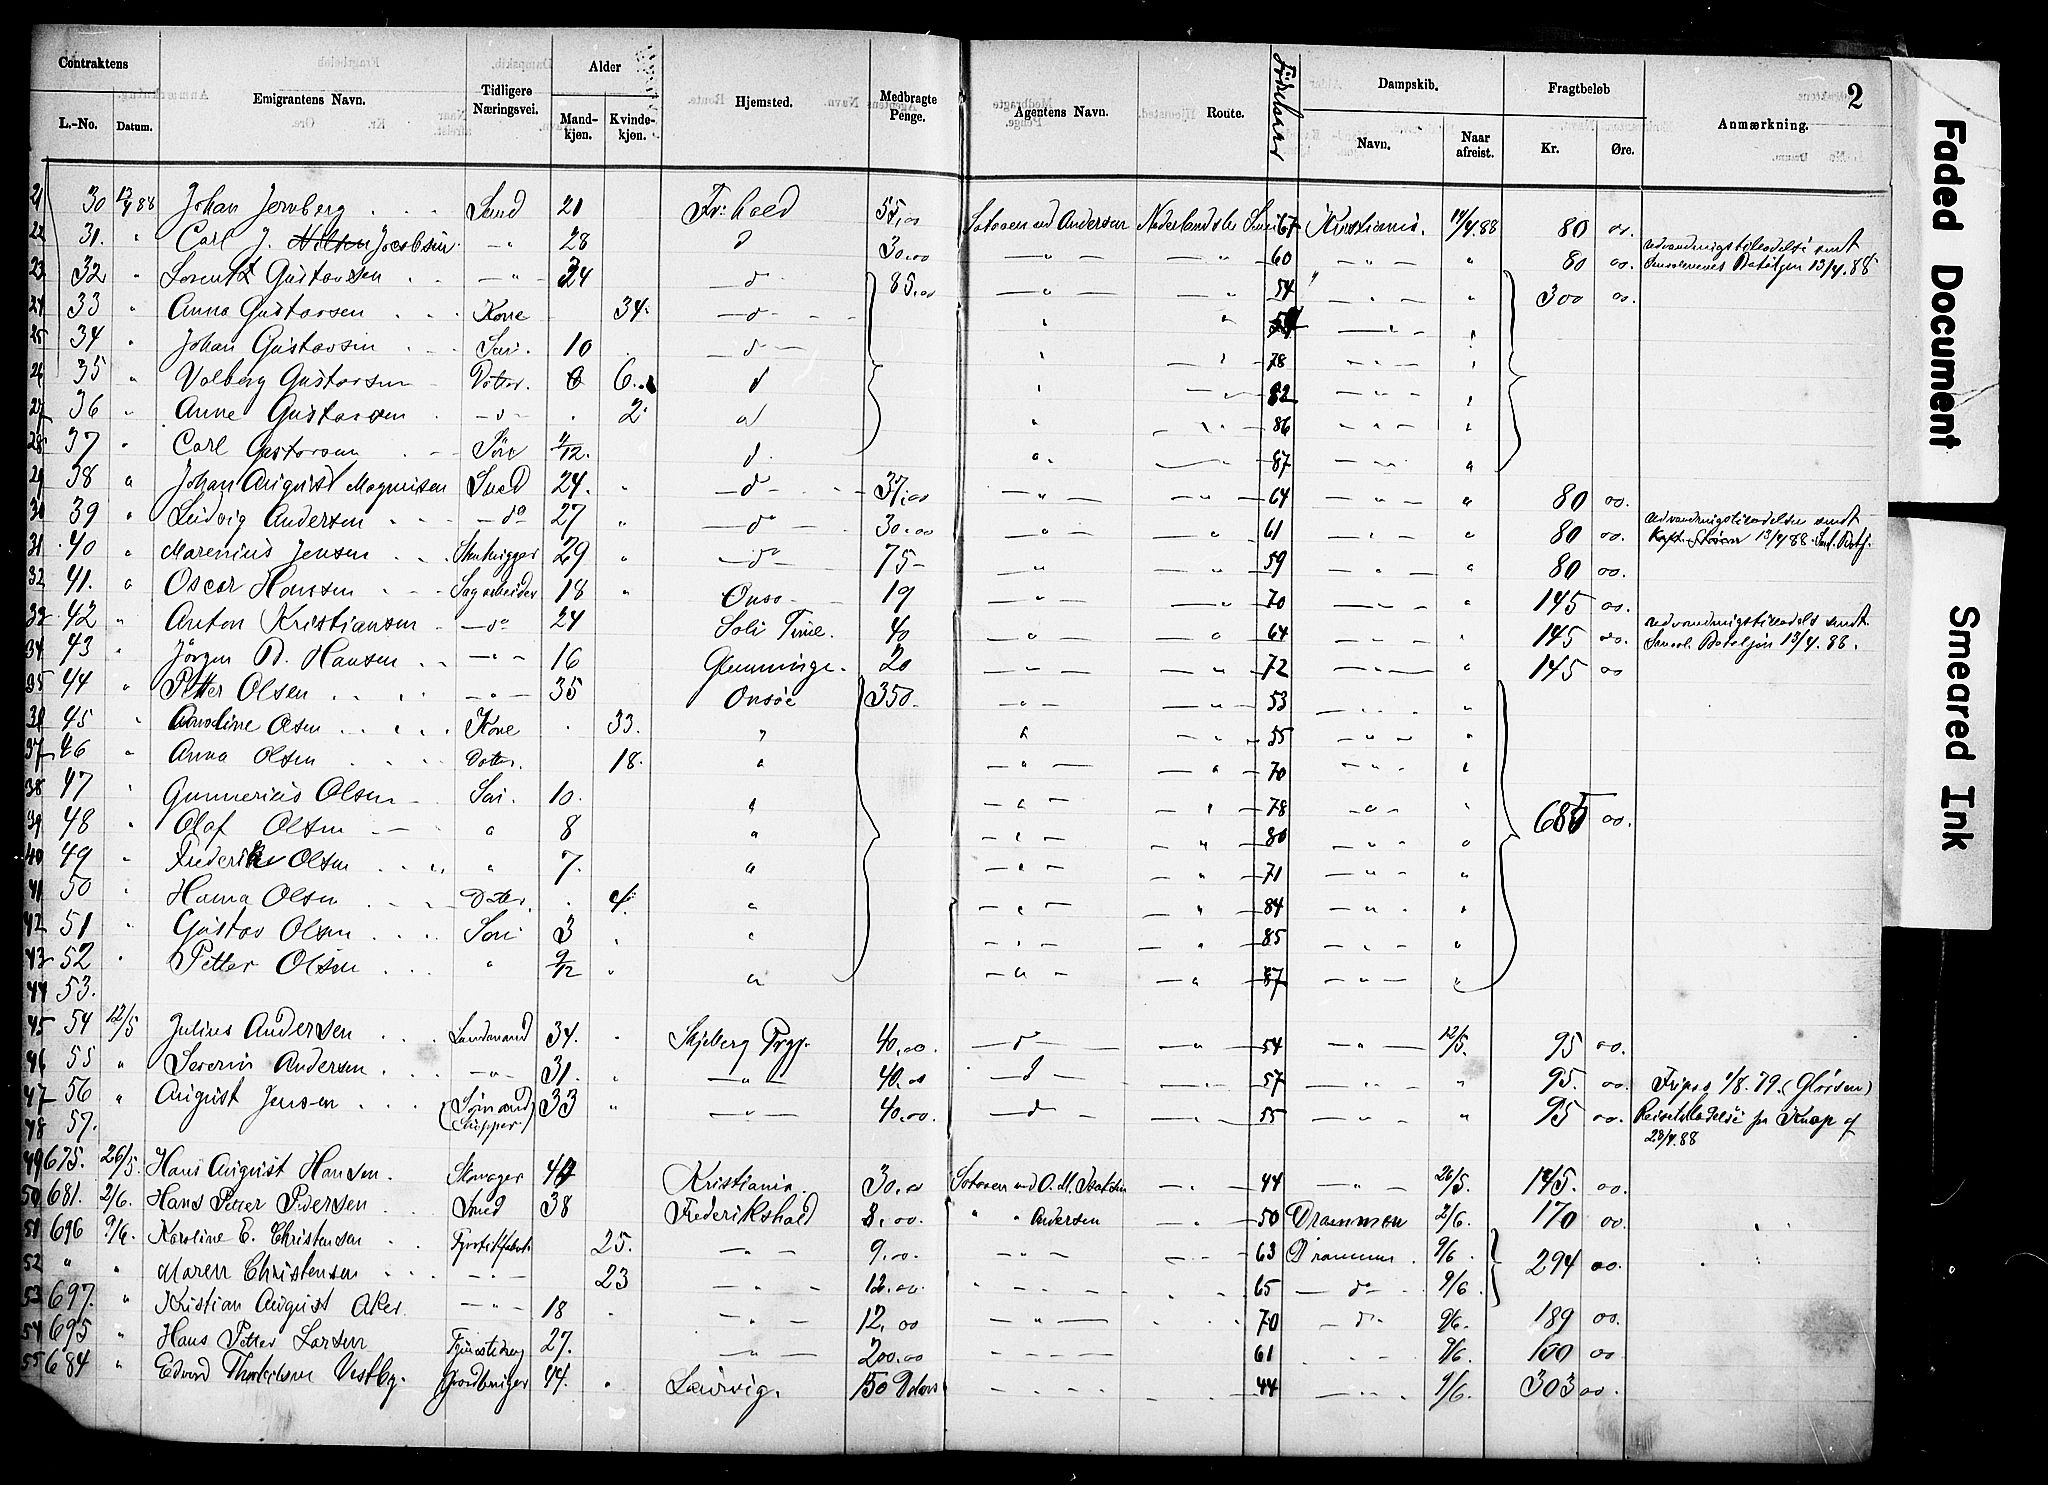 Contraktens
L.-No.
Datum.
Emigrantens Navn.
Tidligere Næringsvei.
Alder
Mand-kjøn.
Kvinde-kjøn.
Hjemsted.
Medbragte Penge.
Agentens Navn.
Route.
Fødselsaar
Dampskib.
Navn.
Naar afreist.
Fragtbeløb
Kr.
Øre.
Anmærkning.
2
21 30 13/4 88 Johan Jernberg Smed 21 Fr:hald 55,00 Andersen 67 Kristiania. 14/4.88 80 00.
22 31. " Carl J. Nilsen Jacobsen -"- 28 d 30,00 -"- -"- 60 -"- " 80 00. udvandringstilladelse sendt 13/4.88
23 32 " Lorentz Gustavsen -"- 34 d 85,00 -"- -"- 54 -"- " 300 00.
24 33 " Anna Gustavsen Kone 34. d " " 54 -"- "
25 34 " Johan Gustavsen Søn. 10 d " " 78 -"- "
26 35 " Valberg Gustavsen Dotter. 6. d " " 82 -"- "
27 36 " Anne Gustavsen -d- 2. d " " 86 -"- "
28 37 " Carl Gustavsen Søn /12. d. " 87 -"- "
29 38 " Johan August Magnusen Smed 24. " d 37,00 -"- -"- 64 -"- " 80 00.
30 39 " Ludvig Andersen -do 27 " do 30,00 -"- -"- 61 -"- " 80 00. udvandringstilladelse sendt 13/4 88.
31 40 " Marenius Jensen 29 " do 75- -"- -"- 59 -"- " 80 00.
32 41. " Oscar Hansen Sagarbeider 18 " Onsø 19 -"- -"- 70 -"- " 145 00.
33 42 " Anton Kristiansen -do 24 Soli Tune. 40 -"- -"- 64 -"- " 145 00. udvandringstilladels sendt 13/4. 88.
34 43 " Jörgen B. Hansen -"- 16 Glemminge. 20 -"- -"- 72 -"- " 145 00
35 44 " Petter Olsen -"- 35 Onsöe 350. -"- -"- 53 -"- "
36 45 " Olsen Kone 33. " " -"- 55 -"- "
37 46 " Anna Olsen Dotter. 18. " -"- -"- 70 -"- "
38 47 " Gunnerius Olsen Søn. 10. " -"- " 78 -"- " 685 00.
39 48 " Olaf Olsen " 8 " -"- 80 -"- "
40 49 " Frederik Olsen " 7. " -"- -"- 71 -"- "
41 50 " Hanna Olsen Dotter. 4. " -"- -"- 84 -"- "
42 51 " Gustav Olsen Søn 3 " " -"- -"- 85 -"- "
43 52 " Petter Olsen " 9/12 " " -"- -"- 87 -"- "
44 53.
45 54 12/5 Julius Andersen Landmand 34. " Skjeberg Prgj. 40,00. d -"- 54 -"- 12/5. 95 00.
46 55 " Severin Andersen -"- 31. " -"- 40,00 d -"- 57 -"- " 95. 00. Fripas 1/8.79.
47 56 " August Jensen (Sömand Skipper.) 33 " -"- 40,00. d -"- 55 -"- " 95 00. Reisetilladelse 23/4.88
48 57.
49 675. 26/5. Hans August Hansen. 44 Kristiania. 30,00 -"- 44 -"- 26/5. 145. 00.
50 681. 2/6. Hans Petter Pedersen Smed 38 Frederikshald 8,00. " " Andersen -"- 50 Drammen 2/6. 170 00
51 696 9/6. Karoline E. Christensen 25. -"- 9,00. -"- -"- 63 Drammen 9/6. 294 00.
52 " " Maren Christensen -"- 23 -"- 12,00. -"- 65 do 9/6.
53 697. " Kristian August Aker. -"- 18 " -"- 12,00 -"- 70 do 9/6. 189 00.
54 695 " Hans Petter Larsen 27. -"- 200,00 61 9/6. 100 00
55 684 " Edvard Vestby. 44. " Laurvig. 150 44 9/6. 303 00.
Faded Document
Smeared Ink